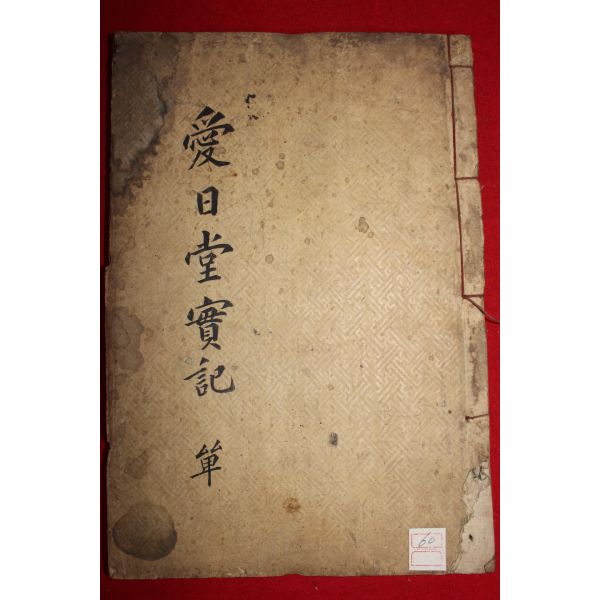 愛日堂實記 單
60